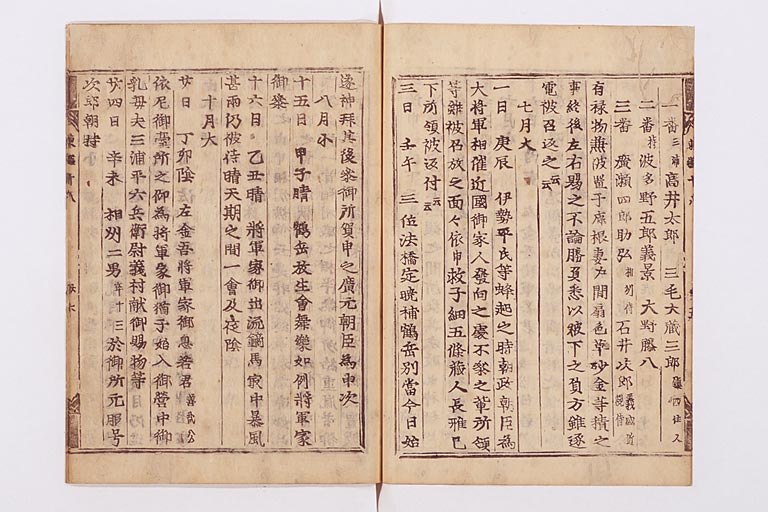 一番 三浦 高井太郎 三毛大蔵三郎
二番 波多野五郎義景 大野藤八
三番 廣瀬四郎助弘 相州侍 石井次郎 義盛近侍
有禄物兼被置于廣根妻戸間扇色革砂金等積之
事終後左右賜之不論勝負悉以被下之負方雖逐
電被召返之云云
七月大
一日 庚辰 伊勢平氏等蜂起之時朝政朝臣為
大将軍相催近國御家人發向之處不参之輩所領
等雖被召放之面々依申救子細五條蔵人長雅已
下所領被返付云云
三日 壬午 三位法橋定暁補鶴岳別當今日始
遂神拝其後参御所賀申之廣元朝臣為申次
八月小
十五日 甲子晴 鶴岳放生會舞樂如例将軍家
御参
十六日 乙丑晴 将軍家御出流鏑馬最中暴風
甚雨仍被待晴天期之間一會及夜陰
十月大
廿日 丁卯陰 左金吾将軍家御息若君 善哉公
依尼御臺所之仰為将軍家御猶子始入御營中御
乳母夫三浦平六兵衛尉義村献御賜物等
廿四日 辛未 相州二男 年十三 於御所元服号
次郎朝時
東鑑十八